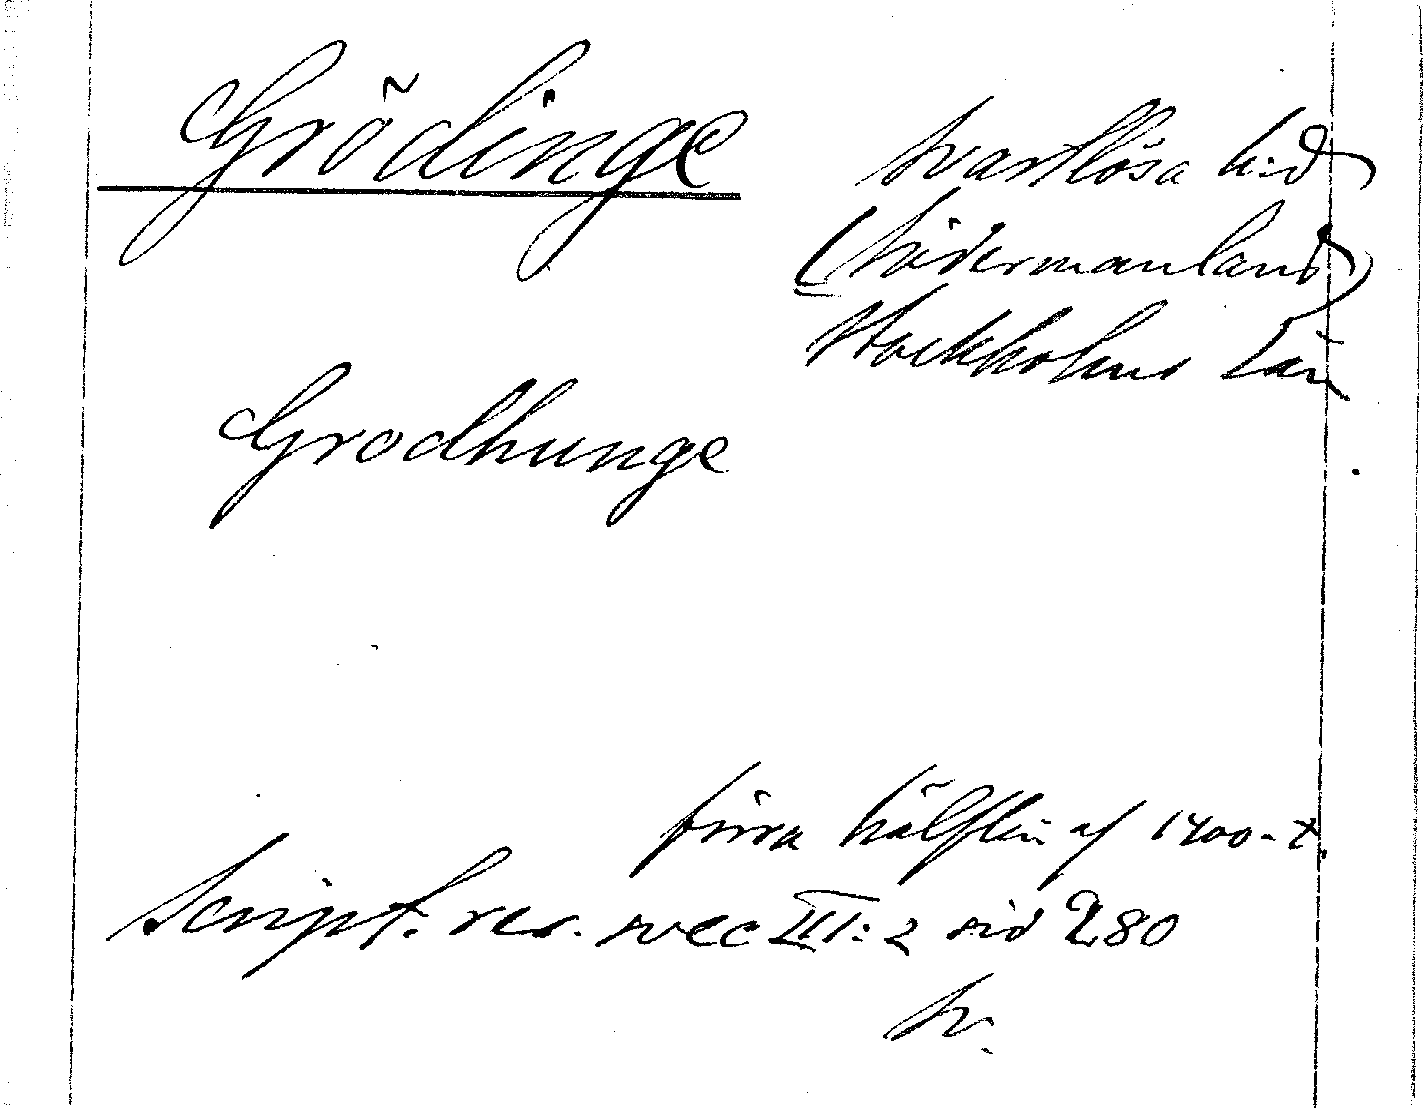 Grödinge
Svartlösa h:d
(Södermanland)
Stockholms län
Grodhunge
förra hälften af 1400-t.
Script. rer. svec III:2 sid 280
Sv.